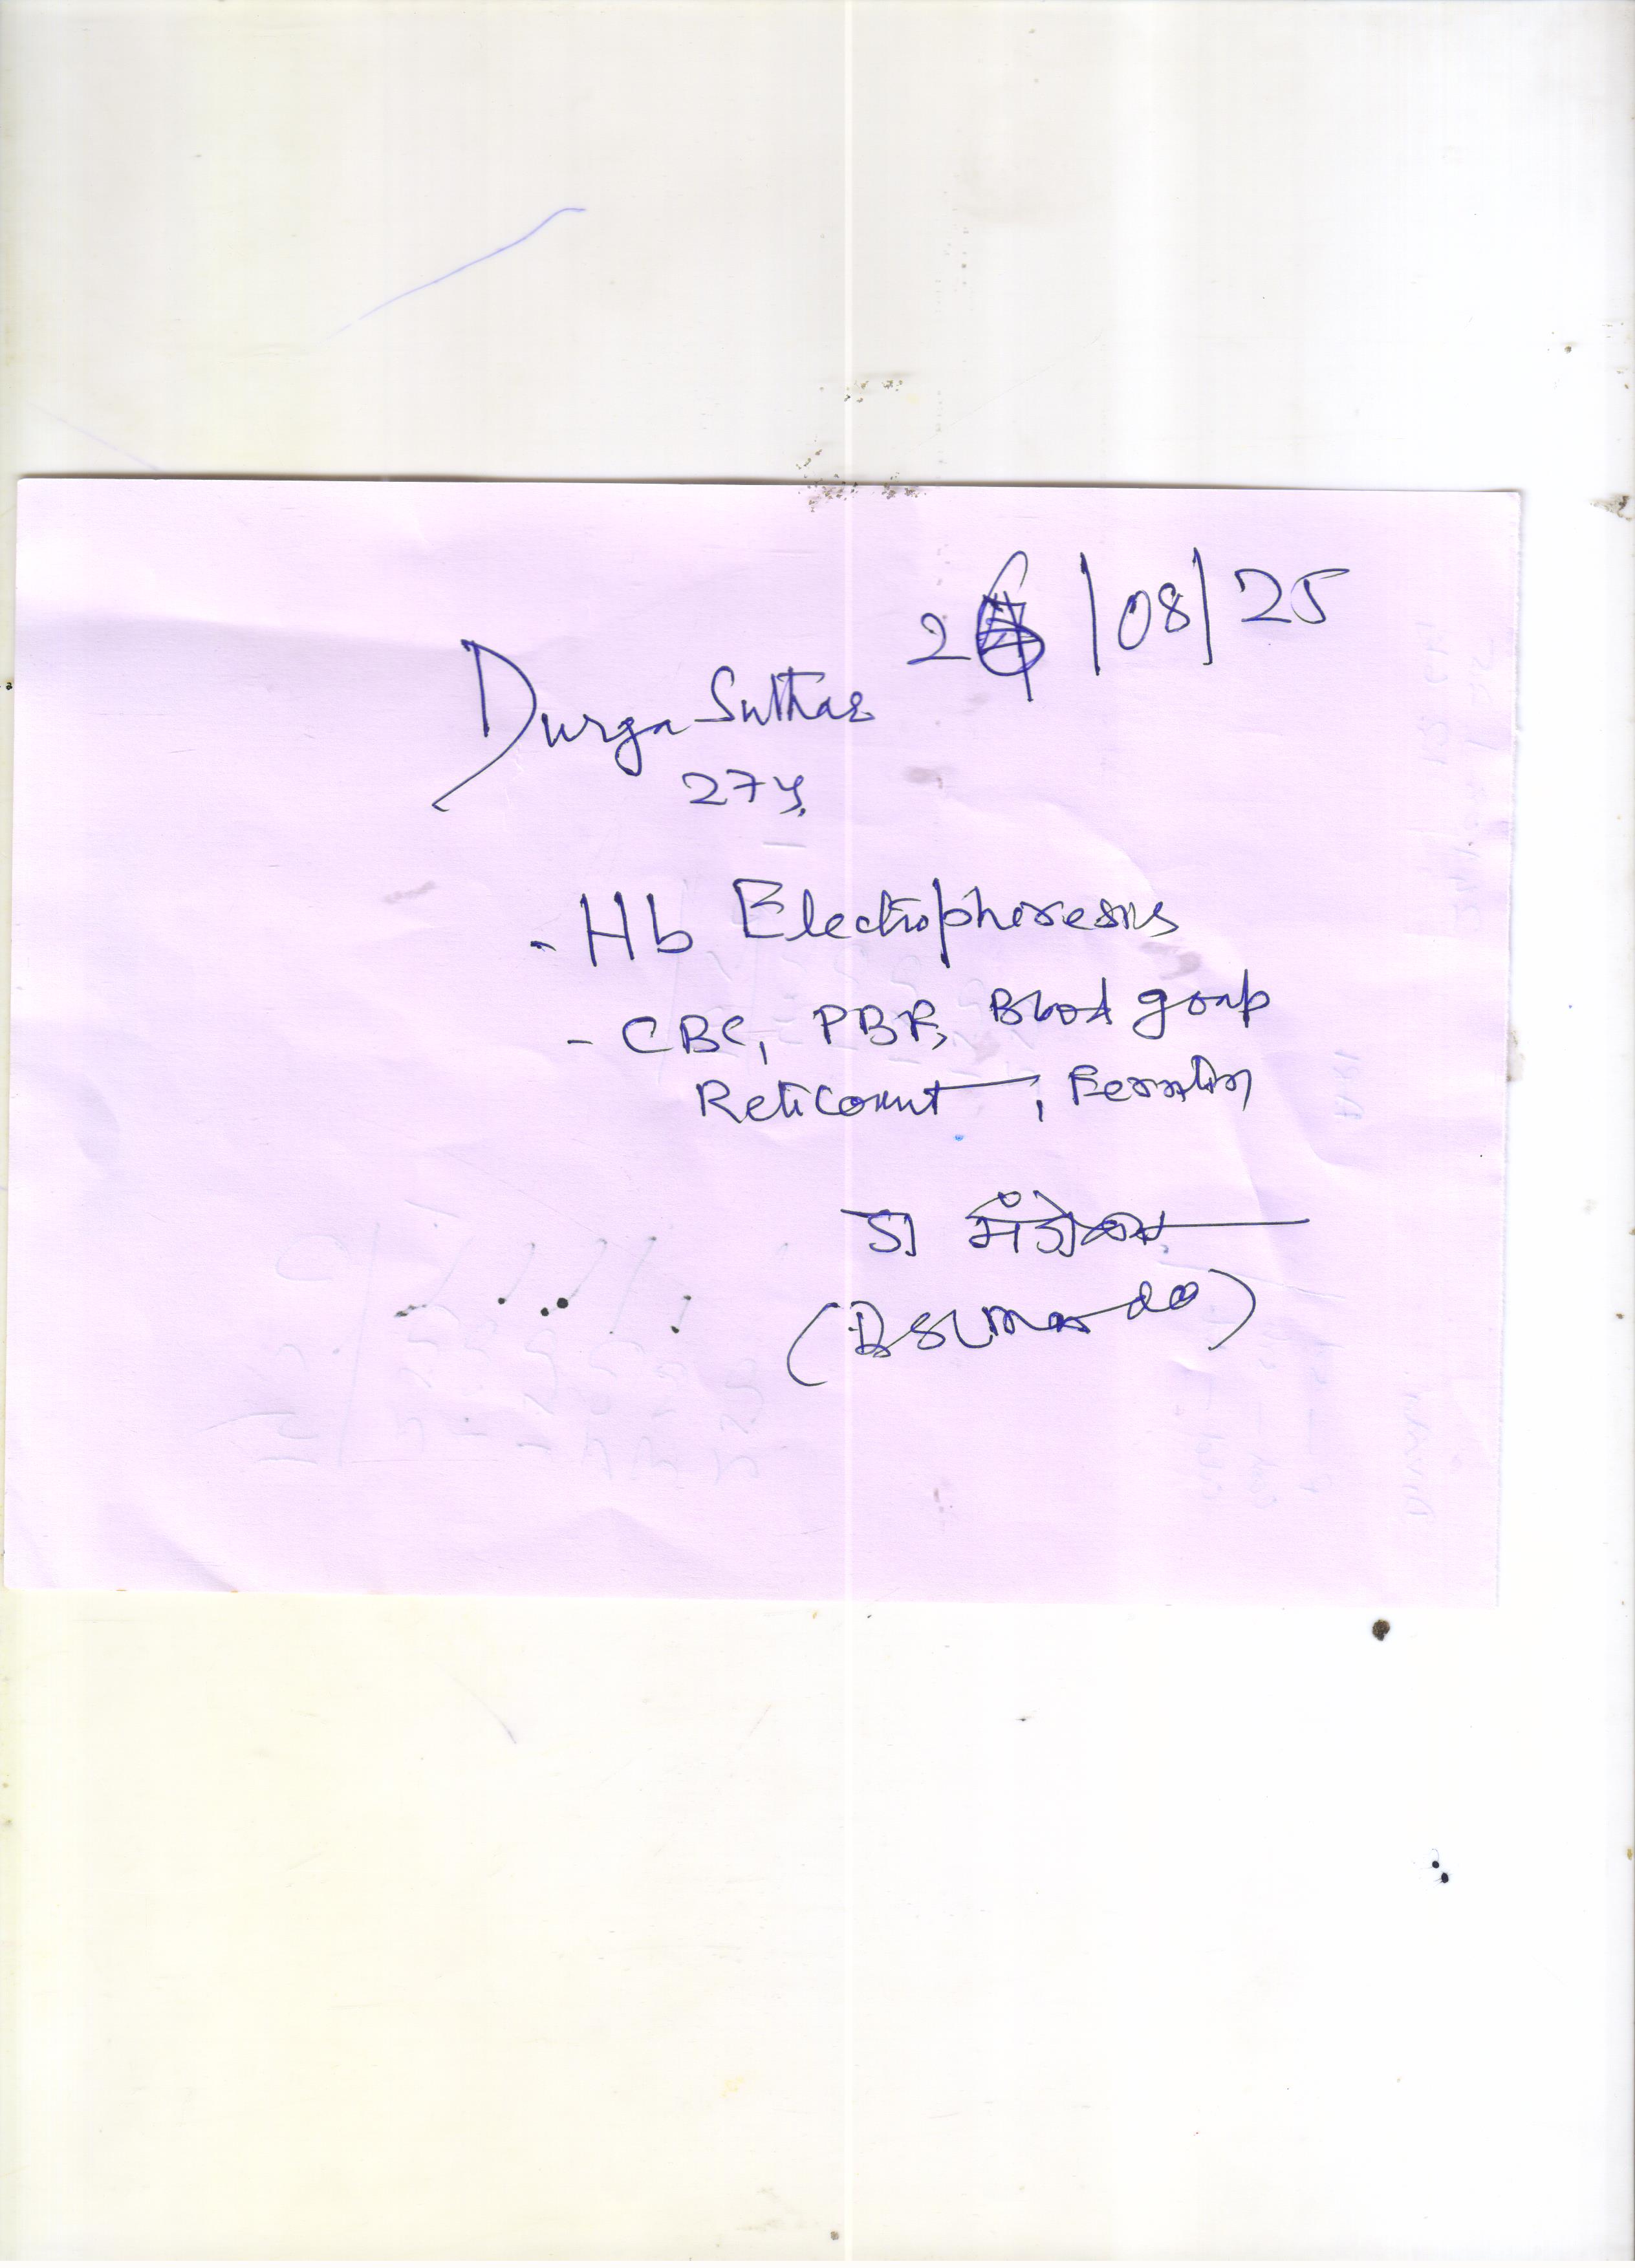 26/08/25
Durga Suthar
27y
- Hb Electrophoresis
- CBC, PBF, Blood group
Reticount, Ferritin
डा
(Dr